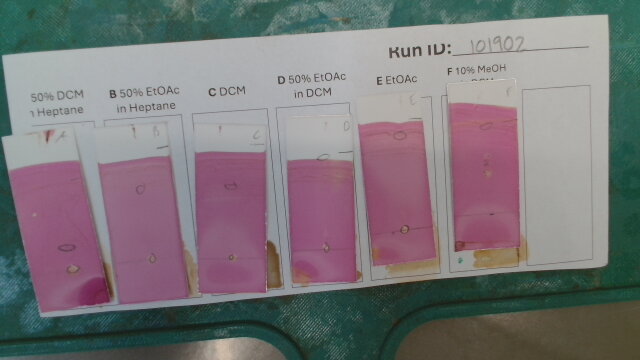 Run ID: 101902
50% DCM
in Heptane
B 50% EtOAc
in Heptane
C DCM
D 50% EtOAc
in DCM
E EtOAc
F 10% MeOH
A
B
C
D
E
F